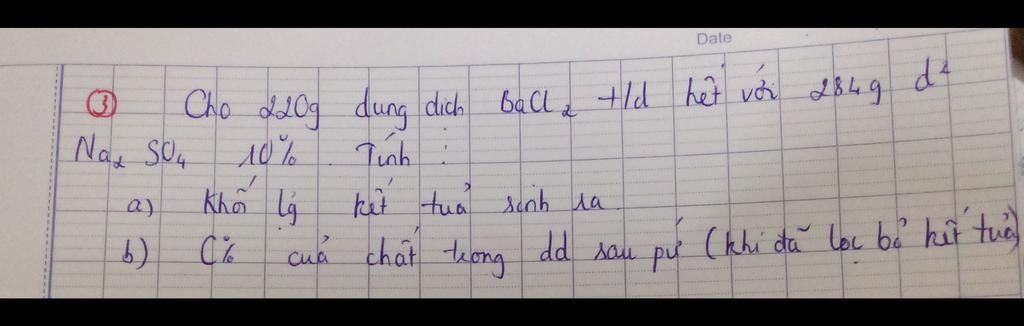 Date
③ Cho 220g dung dịch BaCl₂ t/d hết với 284g d²
Na₂SO₄ 10%. Tính :
a) Khối lg kết tuả sinh ra
b) C% cuả chất trong dd sau pứ (khi đã lọc bỏ kết tuả)